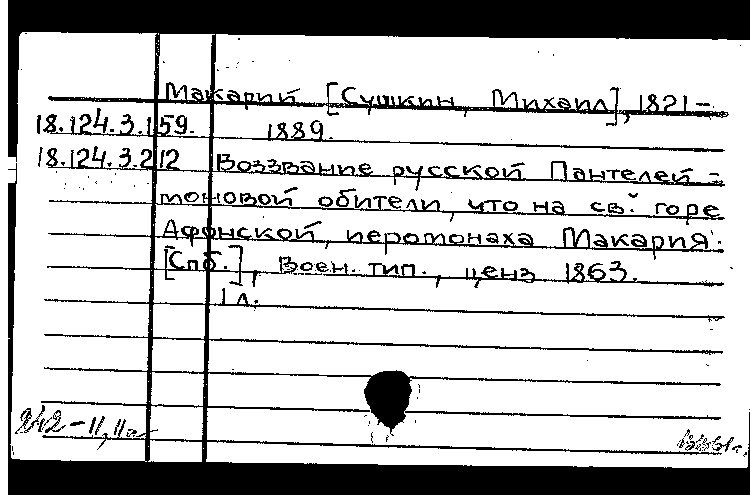 Макарий [Сушкин, Михаил], 1821-
18.124.3.159. 1889.
18.124.3.212 Воззвание русской Пантелей-
моновой обители, что на св. горе
Афонской, иеромонаха Макария.
[Спб.], Воен. тип., ценз 1863.
1 л.
242-11, 11а